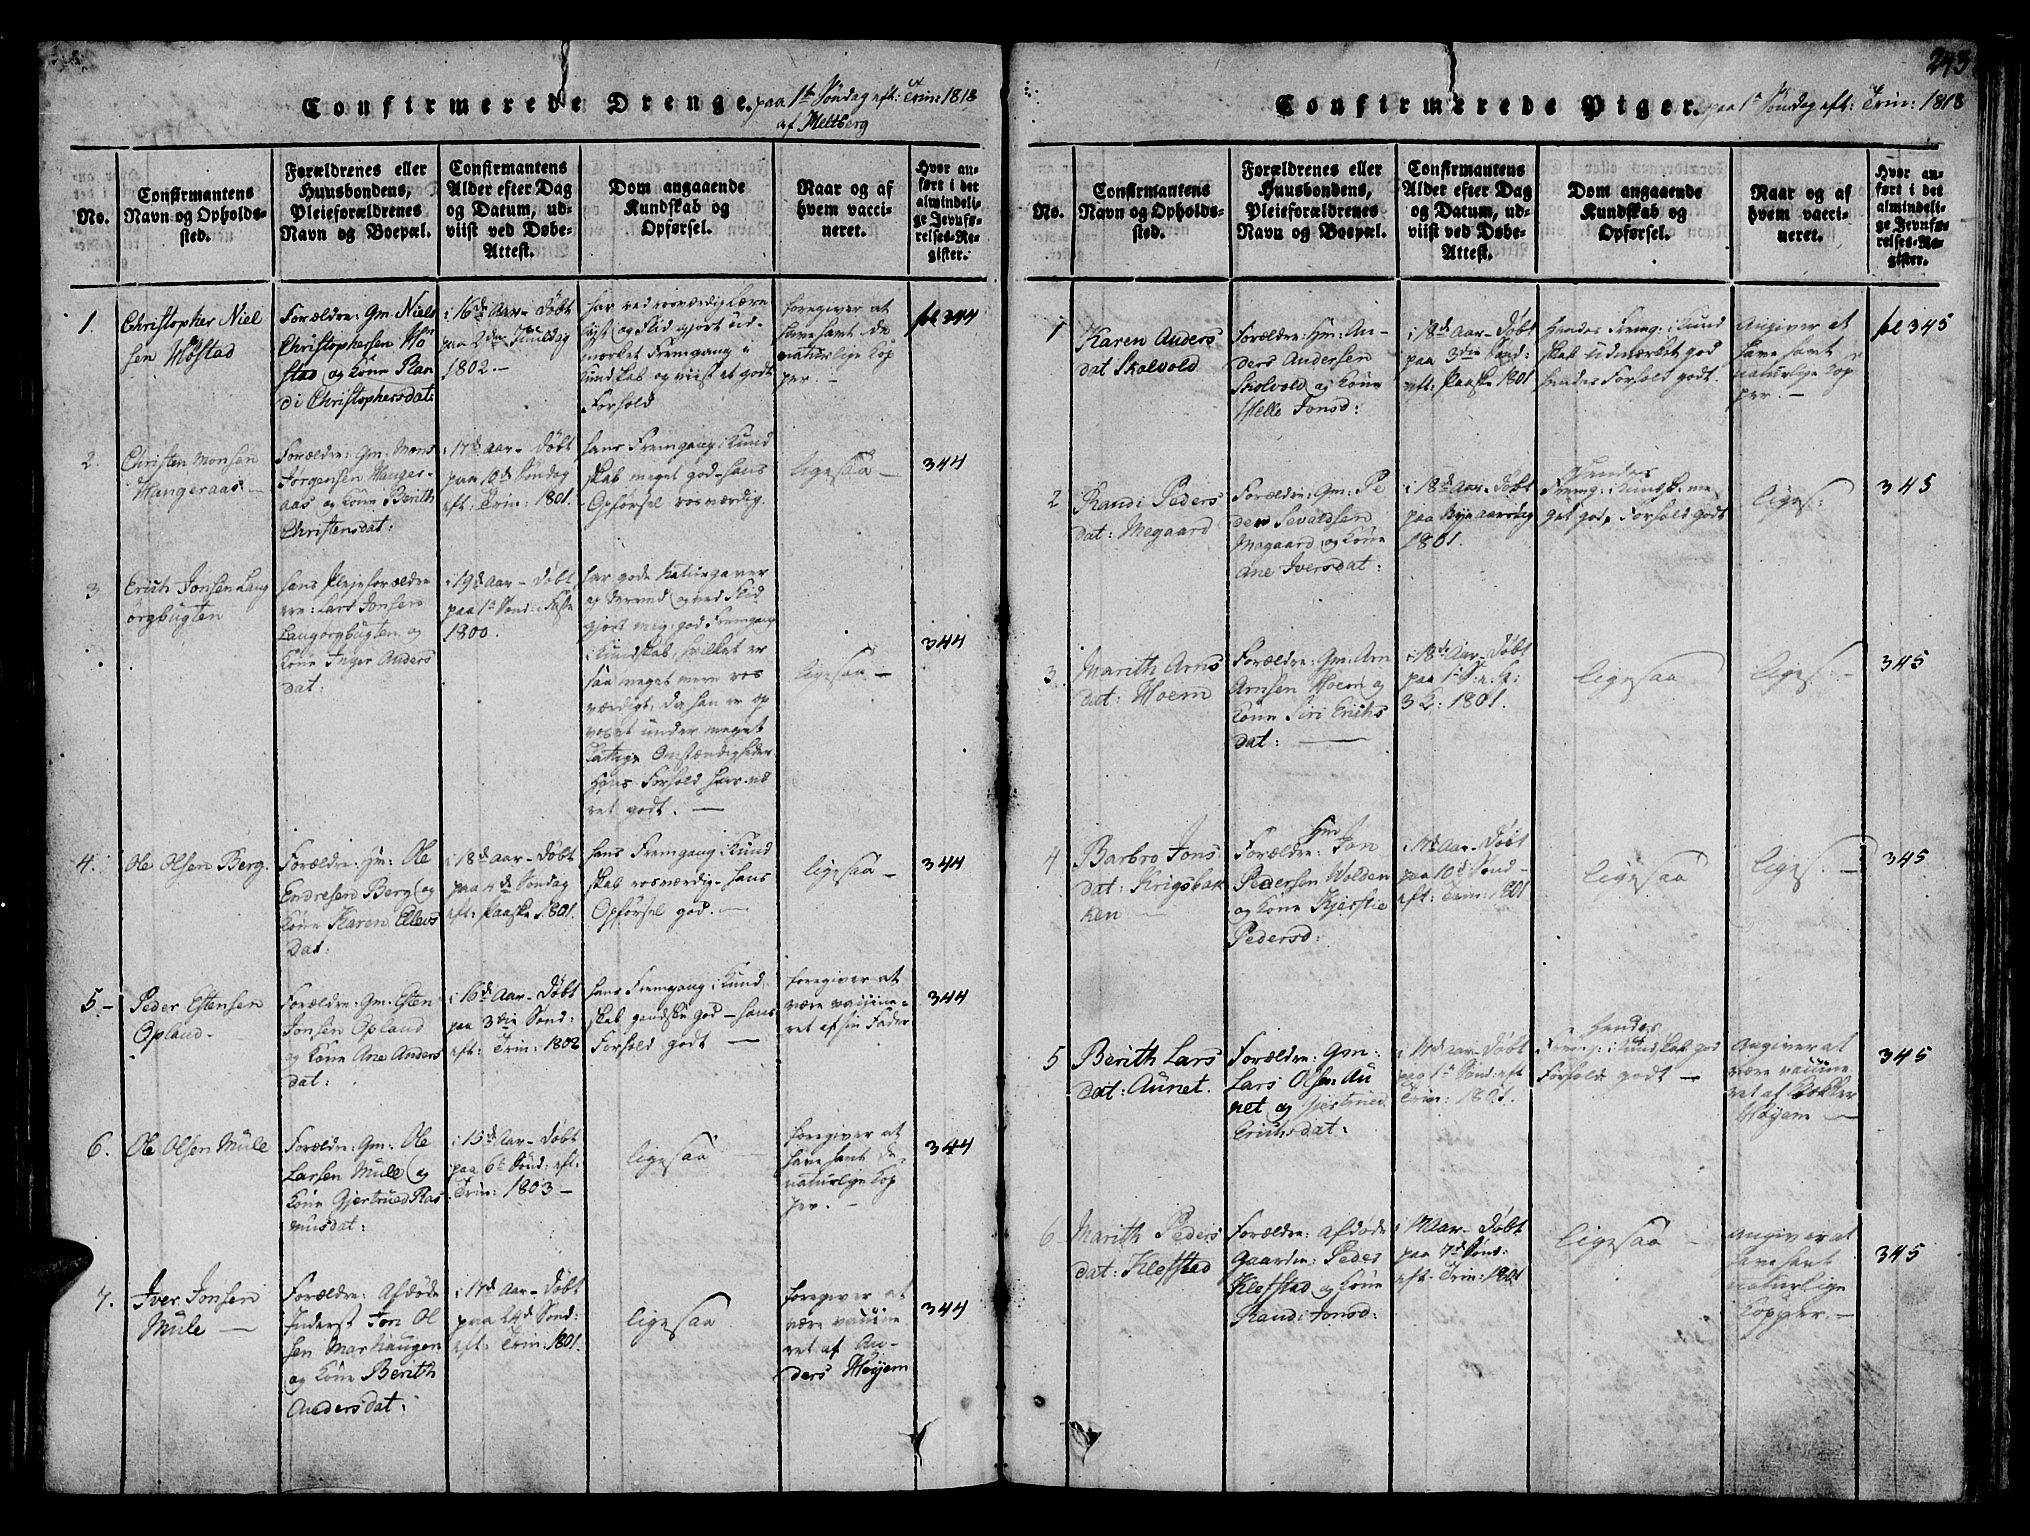 Confirmerede Drenge. paa 1te Søndag eft: Trin: 1818
af Meltberg
No.
Confirmantens
Navn og Opholds-
sted.
Forældrenes eller
Huusbondens,
Pleieforældrenes
Navn og Boepæl.
Confirmantens
Alder efter Dag
og Datum, ud-
viist ved Døbe-
Attest.
Dom angaaende
Kundskab og
Opførsel.
Naar og af
hvem vacci-
neret.
Hvor an-
ført i det
almindeli-
ge Jevnfø-
relses-Re-
gister.
1.
Christopher Niel
sen Høstad
Forældre: Gm: Niels
Christophersen Hø
stad og Kone Ran
di Christophersdat:
i 16de Aar - Døbt
paa 2den Juuledag
1802. -
har ved rosværdig Lære
lyst og Flid gjort ud-
mærket Fremgang i
Kundskab og viist et godt
Forhold
foregiver at
have havt de
naturlige Kop
per. -
fol 344
2.
Christen Monsen
Hangeraas -
Forældre: Gm: Mons
Jørgensen Hanger-
aas og Kone Berith
Christensdat:
i 17de Aar - Døbt
paa 10de Søndag
eft: Trin: 1801.
hans Fremgang i Kund
skab meget god - hans
Opførsel rosværdig.
ligesaa -
344
3
Erich Jonsen Lang
ørgbugten
hans Plejeforældre
ere: Lars Jonsen
Langørgbugten og
Kone Inger Anders
dat:
i 19de Aar - Døbt
paa 1te Sønd: i Faste
1800.
har gode Naturgaver
og derved og ved Flid
gjort meg: god Fremgang
i Kundskab, hvilket er
saa meget mere ros
værdigt, da han er op
voxet under meget
fattige Omstændigheder
Hans Forhold har væ
ret godt. -
ligesaa -
344
4.
Ole Olsen Berg.
Forældre: Hm: Ole
Endresen Berg og
Kone Karen Ellevs
dat:
i 18de Aar - Døbt
paa 4de Søndag
eft: Paaske 1801.
hans Fremgang i Kund
skab rosværdig - hans
Opførsel god. -
ligesaa -
344
5. -
Peder Estensen
Opland. -
Forældre: Gm: Esten
Jonsen Opland
og Kone Ane Anders
dat:
i 16de Aar - Døbt
paa 3die Sønd:
eft: Trin: 1802
hans Fremgang i Kund
skab gandske god - hans
Forhold godt -
foregiver at
være vaccine-
ret af sin Fader
344
6.
Ole Olsen Mule
Forældre: Gm: Ole
Larsen Mule og
Kone Gjertrued Ras
musdat:
i 15de Aar - Døbt
paa 6te Sønd: eft:
Trin: 1803 -
ligesaa
foregiver at
have havt de
naturlige Kop
per. -
344
7.
Iver Jonsen
Mule -
Forældre: Afdøde
Inderst Jon Ol
sen Marhaugen
og Kone Berith
Andersdat:
i 17de Aar - Døbt
paa 24de Sønd:
eft: Trin: 1801.
ligesaa
foregiver at
være vaccine
ret af An-
ders Høyem
344
243
Confirmerede Piger. paa 1te Søndag eft: Trin: 1818
No.
Confirmantens
Navn og Opholds-
sted.
Forældrenes eller
Huusbondens,
Pleieforældrenes
Navn og Boepæl.
Confirmantens
Alder efter Dag
og Datum, ud-
viist ved Døbe-
Attest.
Dom angaaende
Kundskab og
Opførsel.
Naar og af
hvem vacci-
neret.
Hvor an-
ført i det
almindeli-
ge Jevnfø-
relses-Re-
gister.
1
Karen Anders
dat Skolvold
Forældre: Hm: An-
ders Andersen
Skolvold og Kone
Helle Jonsd:
i 18de Aar - Døbt
paa 3die Sønd:
eft: Paaske 1801
Hendes Fremg: i Kund
skab udmærket god
hendes Forhold godt.
Angiver at
have havt
naturlige Kop
per. -
fol 345
2
Randi Peders
dat: Megaard
Forældre: Gm: Pe
der Sevaldsen
Megaard og Kone
Ane Iversdat:
i 18de Aar - Døbt
paa Nyeaarsdag
1801.
Hendes
Fremg: i Kundsk: me-
get god, Forhold godt
liges:
345
3
Marith Arns
dat: Hoem
Forældre: Gm: Arn
Arnsen Hoem og
Kone Siri Erichs
dat: -
i 18de Aar - Døbt
paa 1te S: e: H:
3 K: 1801.
ligesaa
liges: -
345
4
Barbro Jons
dat: Krigsbak
ken -
Hm:
Forældre: Jon
Pedersen Wolden
og Kone Kjerstie
Pedersd:
i 17de Aar - Døbt
paa 10de Sønd -
eft: Trin: 1801
ligesaa
liges: -
345
5
Berith Lars
dat: Aunet.
Forældre: Gm:
Lars Olsen Au
net og Gjertrued
Erichsdat:
i 17de Aar - Døbt
paa 1te Sønd: eft
Trin: 1801.
Hendes
Fremg: i Kundskab god
Forhold godt -
Angiver at
være vaccine
ret af Klokker
Høyem -
345
6
Marith Peders
dat: Klefstad
Forældre: Afdøde
Gaardm: Peder
Klefstad og Kone
Randi Jonsd:
i 17 Aar - Døbt
paa 7de Sønd:
eft: Trin: 1801
ligesaa
Angiver at
have havt
naturlige
Kopper. -
345